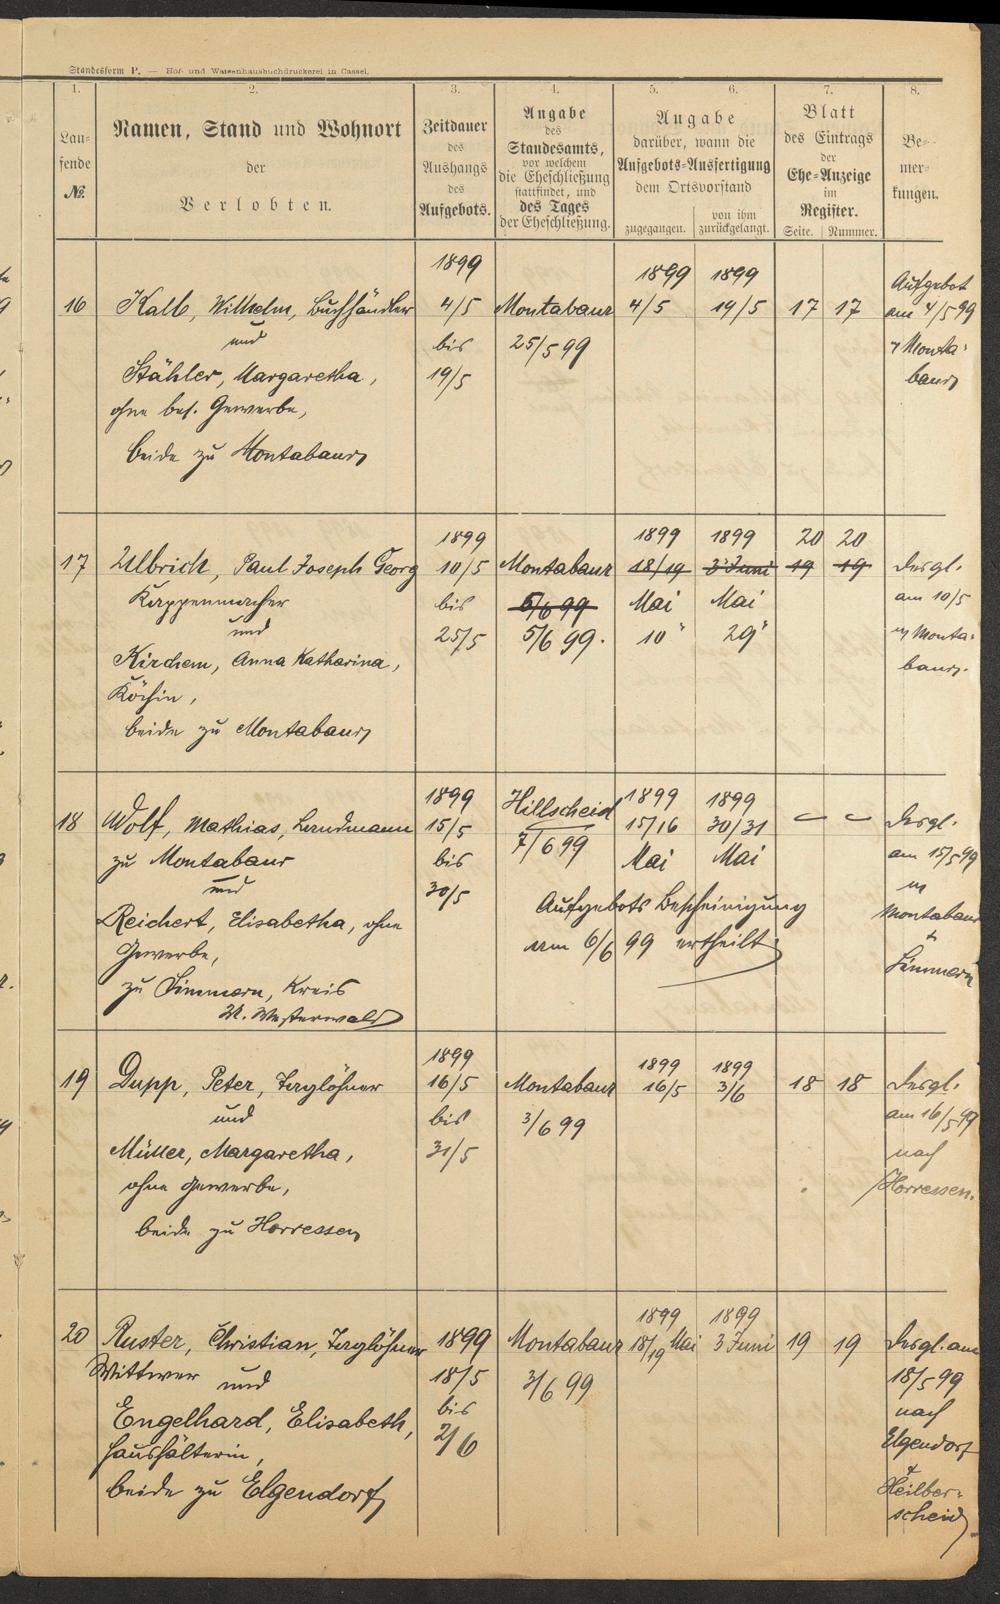 Standesform P. — Hof- und Waisenhausbuchdruckerei in Cassel.
1. 2. 3. 4. 5. 6. 7. 8.
Laufende №.
Namen, Stand und Wohnort
der
Verlobten.
Zeitdauer
des
Aushangs
des
Aufgebots.
Angabe
des
Standesamts,
vor welchem
die Eheschließung
stattfindet, und
des Tages
der Eheschließung.
Angabe
darüber, wann die
Aufgebots-Ausfertigung
dem Ortsvorstand
zugegangen.
von ihm
zurückgelangt.
Blatt
des Eintrags
der
Ehe-Anzeige
im
Register.
Seite. Nummer.
Bemerkungen.
1899 1899 1899 Aufgebot
16 Kalb, Wilhelm, Buchhändler 4/5 Montabaur 4/5 19/5 17 17 am 4/5 99
und bis 25/5 99 Monta-
Stähler, Margaretha, 19/5 baur
ohne bes. Gewerbe,
beide zu Montabaur
1899 1899 1899 20 20
17 Ulbrich, Paul Joseph Georg 10/5 Montabaur 18/19 3 Juni 19 19 desgl.
Kappenmacher bis 6/6 99 Mai Mai am 10/5
und 25/5 5/6 99. 10 29 in Monta-
Kirchem, Anna Katharina, baur.
Köchin,
beide zu Montabaur
1899 Hillscheid 1899 1899
18 Wolf, Mathias, Landmann 15/5 7/6 99 15/16 30/31 — — desgl.
zu Montabaur bis Mai Mai am 15/5 99
und 30/5 Aufgebots Bescheinigung in
Reichert, Elisabetha, ohne am 6/6 99 ertheilt. Montabaur
Gewerbe, +
zu Simmern, Kreis Simmern
U. Westerwald
1899 1899 1899
19 Dupp, Peter, Taglöhner 16/5 Montabaur 16/5 3/6 18 18 desgl.
und bis 3/6 99 am 16/5 99
Müller, Margaretha, 31/5 nach
ohne Gewerbe, Horressen.
beide zu Horressen
1899 1899
20 Ruster, Christian, Taglöhner 1899 Montabaur 18/19 Mai 3 Juni 19 19 desgl. am
Wittwer und 18/5 3/6 99 18/5 99
bis nach
Engelhard, Elisabeth, 2/6 Elgendorf
Haushälterin, +
beide zu Elgendorf Heilber-
scheid